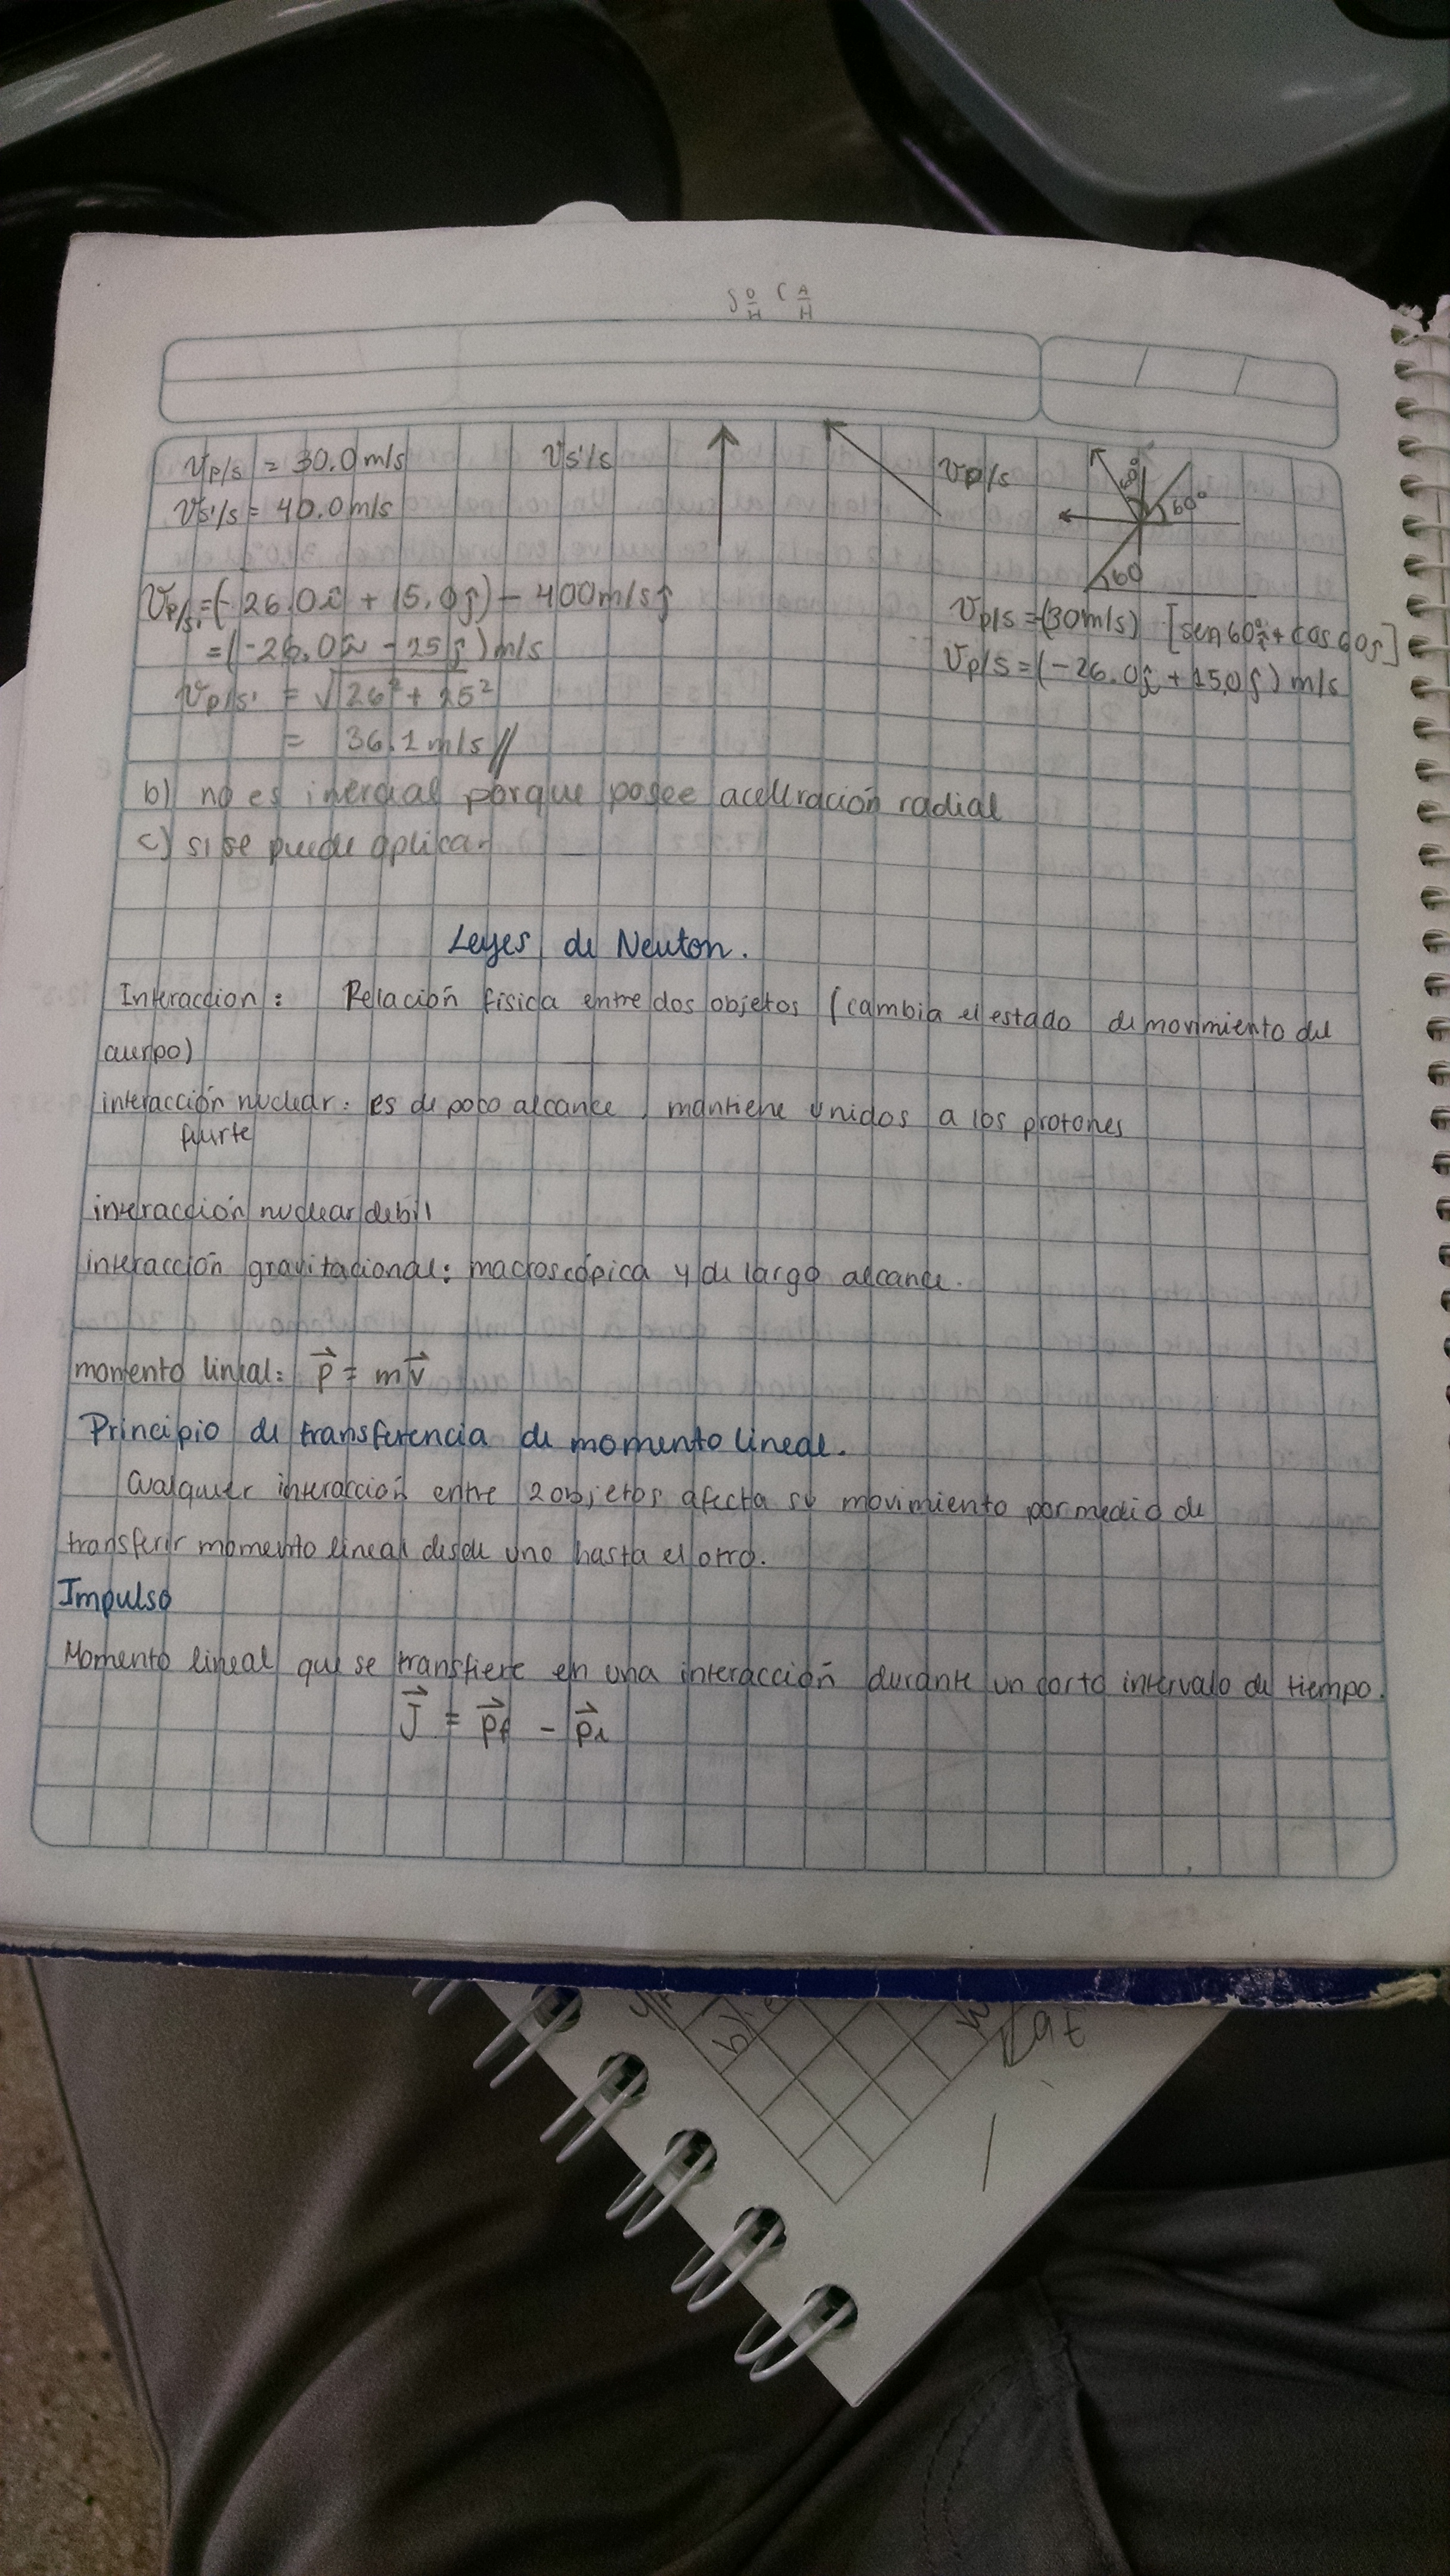 S O/H C A/H
Vp/s = 30.0 m/s
Vs'/s
Vp/s
60°
60°
60
Vs'/s = 40.0 m/s
Vp/s' = (-26.0î + 15.0ĵ) - 400m/s ĵ
= (-26.0î - 25ĵ) m/s
Vp/s' = √26² + 25²
= 36.1 m/s //
Vp/s = (30m/s) [sen60°î + cos60ĵ]
Vp/s = (-26.0î + 15,0ĵ) m/s
b) no es inercial porque posee aceleración radial
c) si se puede aplicar
Leyes de Newton.
Interaccion: Relación física entre dos objetos (cambia el estado de movimiento del
cuerpo)
interacción nuclear: es de poco alcance, mantiene unidos a los protones
fuerte
interacción nuclear debil
interacción gravitacional: macroscópica y de largo alcance.
momento lineal: p⃗ = mv⃗
Principio de transferencia de momento lineal.
Cualquier interacción entre 2 objetos afecta su movimiento por medio de
transferir momento lineal desde uno hasta el otro.
Impulso
Momento lineal que se transfiere en una interacción durante un corto intervalo de tiempo.
J⃗ = p⃗f - p⃗i